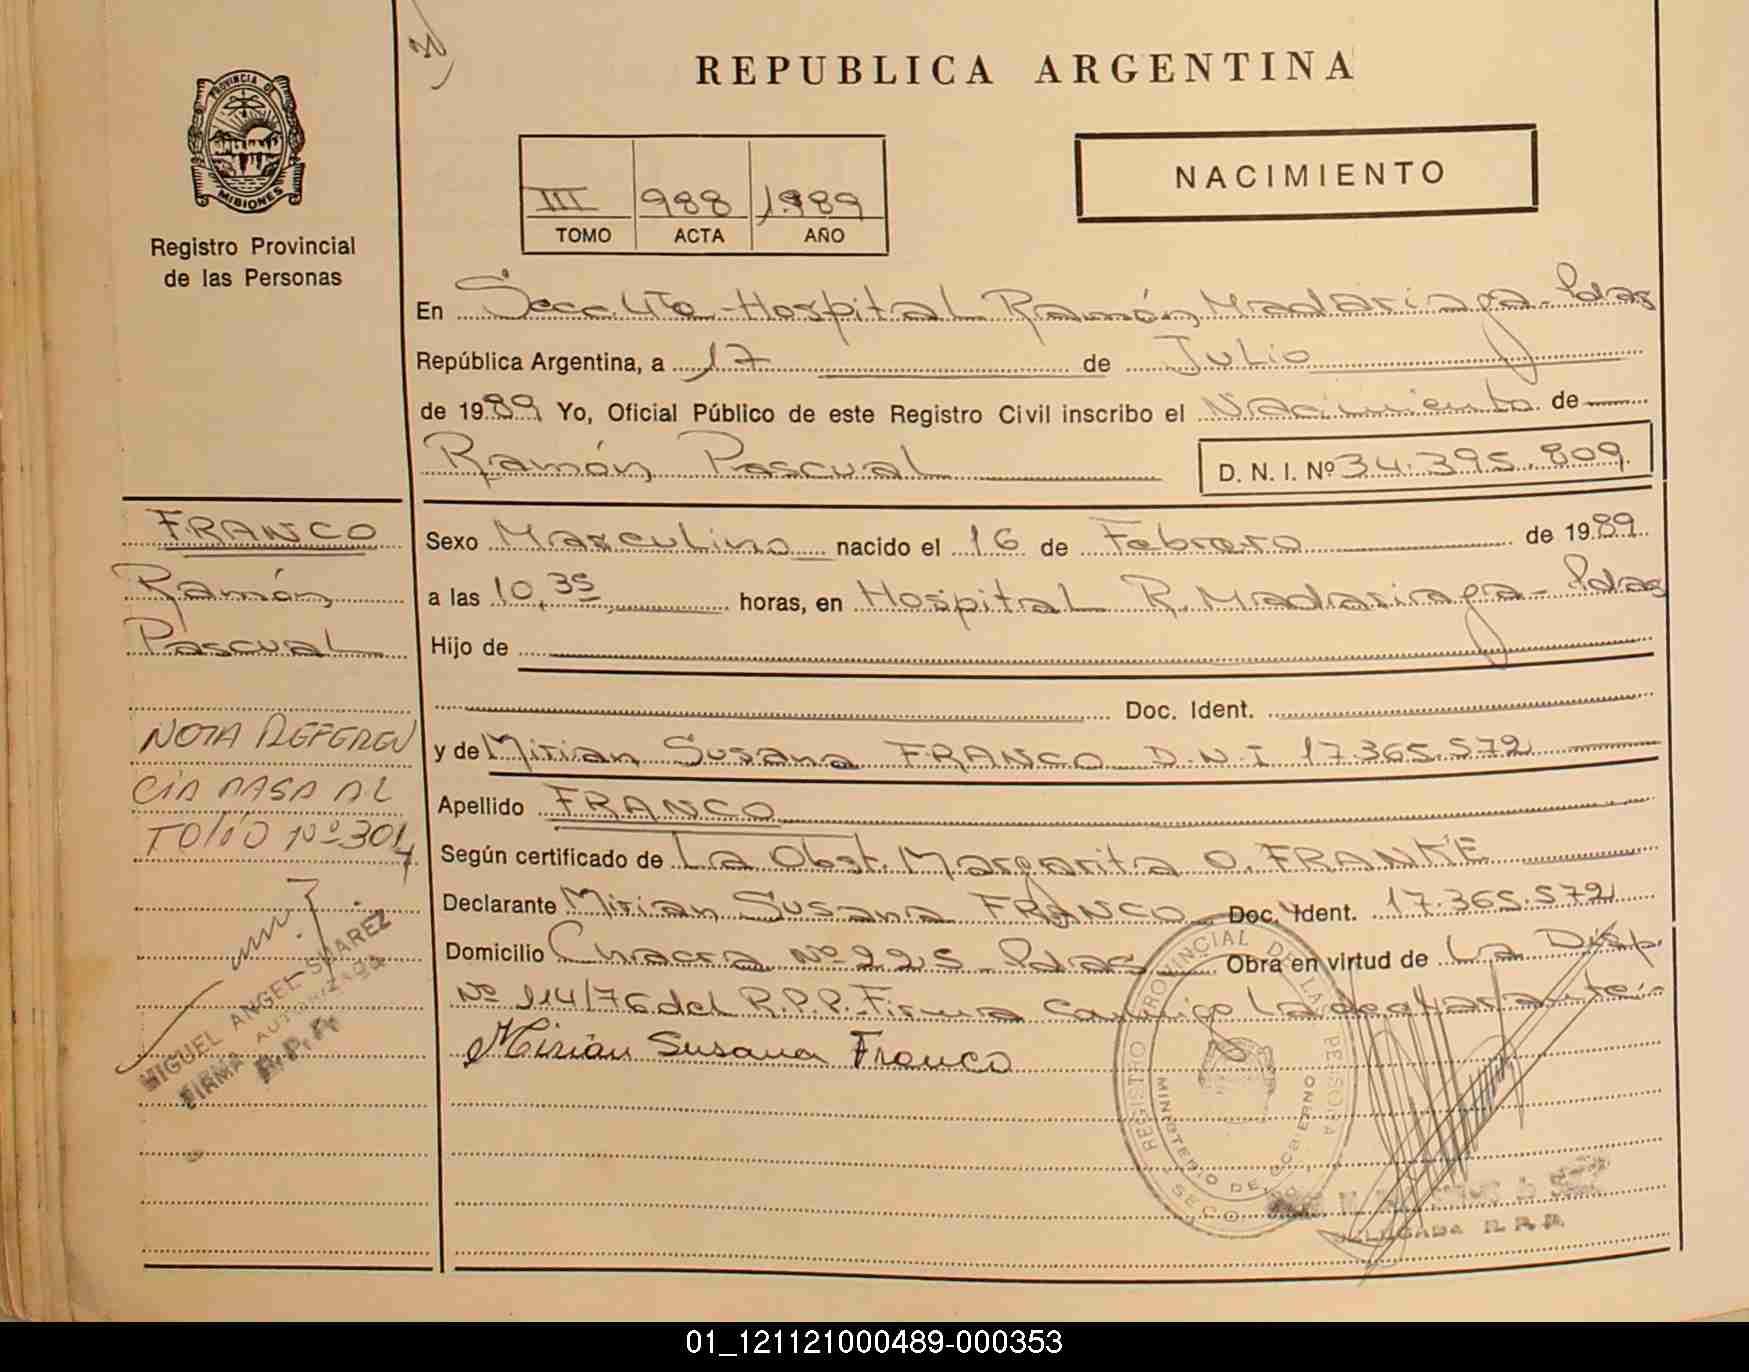 REPUBLICA ARGENTINA
PROVINCIA DE
MISIONES
Registro Provincial
de las Personas
NACIMIENTO
III 988 1989
TOMO ACTA AÑO
En Secc. 4ta - Hospital Ramón Madariaga - Pdas
República Argentina, a 17 de Julio
de 1989 Yo, Oficial Público de este Registro Civil inscribo el Nacimiento de
Ramón Pascual D. N. I. Nº 34.395.809
FRANCO
Ramón
Pascual
Sexo Masculino nacido el 16 de Febrero de 1989
a las 10,35 horas, en Hospital R. Madariaga - Pdas
Hijo de
Doc. Ident.
y de Mirian Susana FRANCO D.N.I 17.365.572
Apellido FRANCO
Según certificado de La Obst. Margarita O. FRANKE
Declarante Mirian Susana FRANCO Doc. Ident. 17.365.572
Domicilio Chacra Nº 225 Pdas Obra en virtud de La Disp.
Nº 214/76 del R.P.P. Firma conmigo La declarante
Mirian Susana Franco
NOTA REFEREN
CIA PASA AL
FOLIO Nº 304
MIGUEL ANGEL SUAREZ
FIRMA AUTORIZADA
R.P.P.
REGISTRO PROVINCIAL DE LAS PERSONAS
MINISTERIO DE GOBIERNO
DELEGADA R.P.P.
01_121121000489-000353